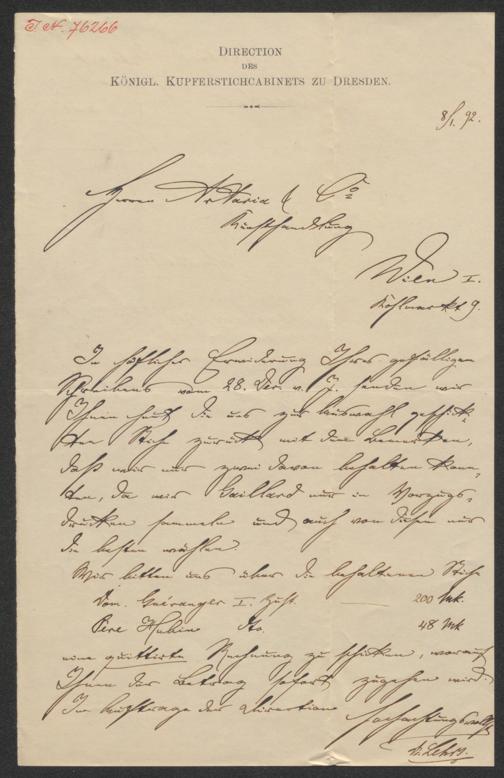 I.N. 76266
DIRECTION
DES
KÖNIGL. KUPFERSTICHCABINETS ZU DRESDEN.
8/1. 92.
Herren Artaria & Co
Kunsthandlung
Wien I.
Kohlmarkt 9.
In höflicher Erwiderung Ihres gefälligen
Schreibens vom 28. Dec. v. J. senden wir
Ihnen heut die uns zur Auswahl geschick-
ten Stiche zurück mit dem Bemerken,
daß wir nur zwei davon behalten konn-
ten, da wir Gaillard nur in Vorzugs-
drucken sammeln und auch von diesen nur
die besten wählen.
Wir bitten uns über die behaltenen Stiche
Dom. Guéranger I. Zust. 200 Mk.
Père Hubin dto. 48 Mk
eine quittirte Rechnung zu schicken, worauf
Ihnen der Betrag sofort zugehen wird.
Im Auftrage der Direction
Hochachtungsvollst
Dr. Lehrs.